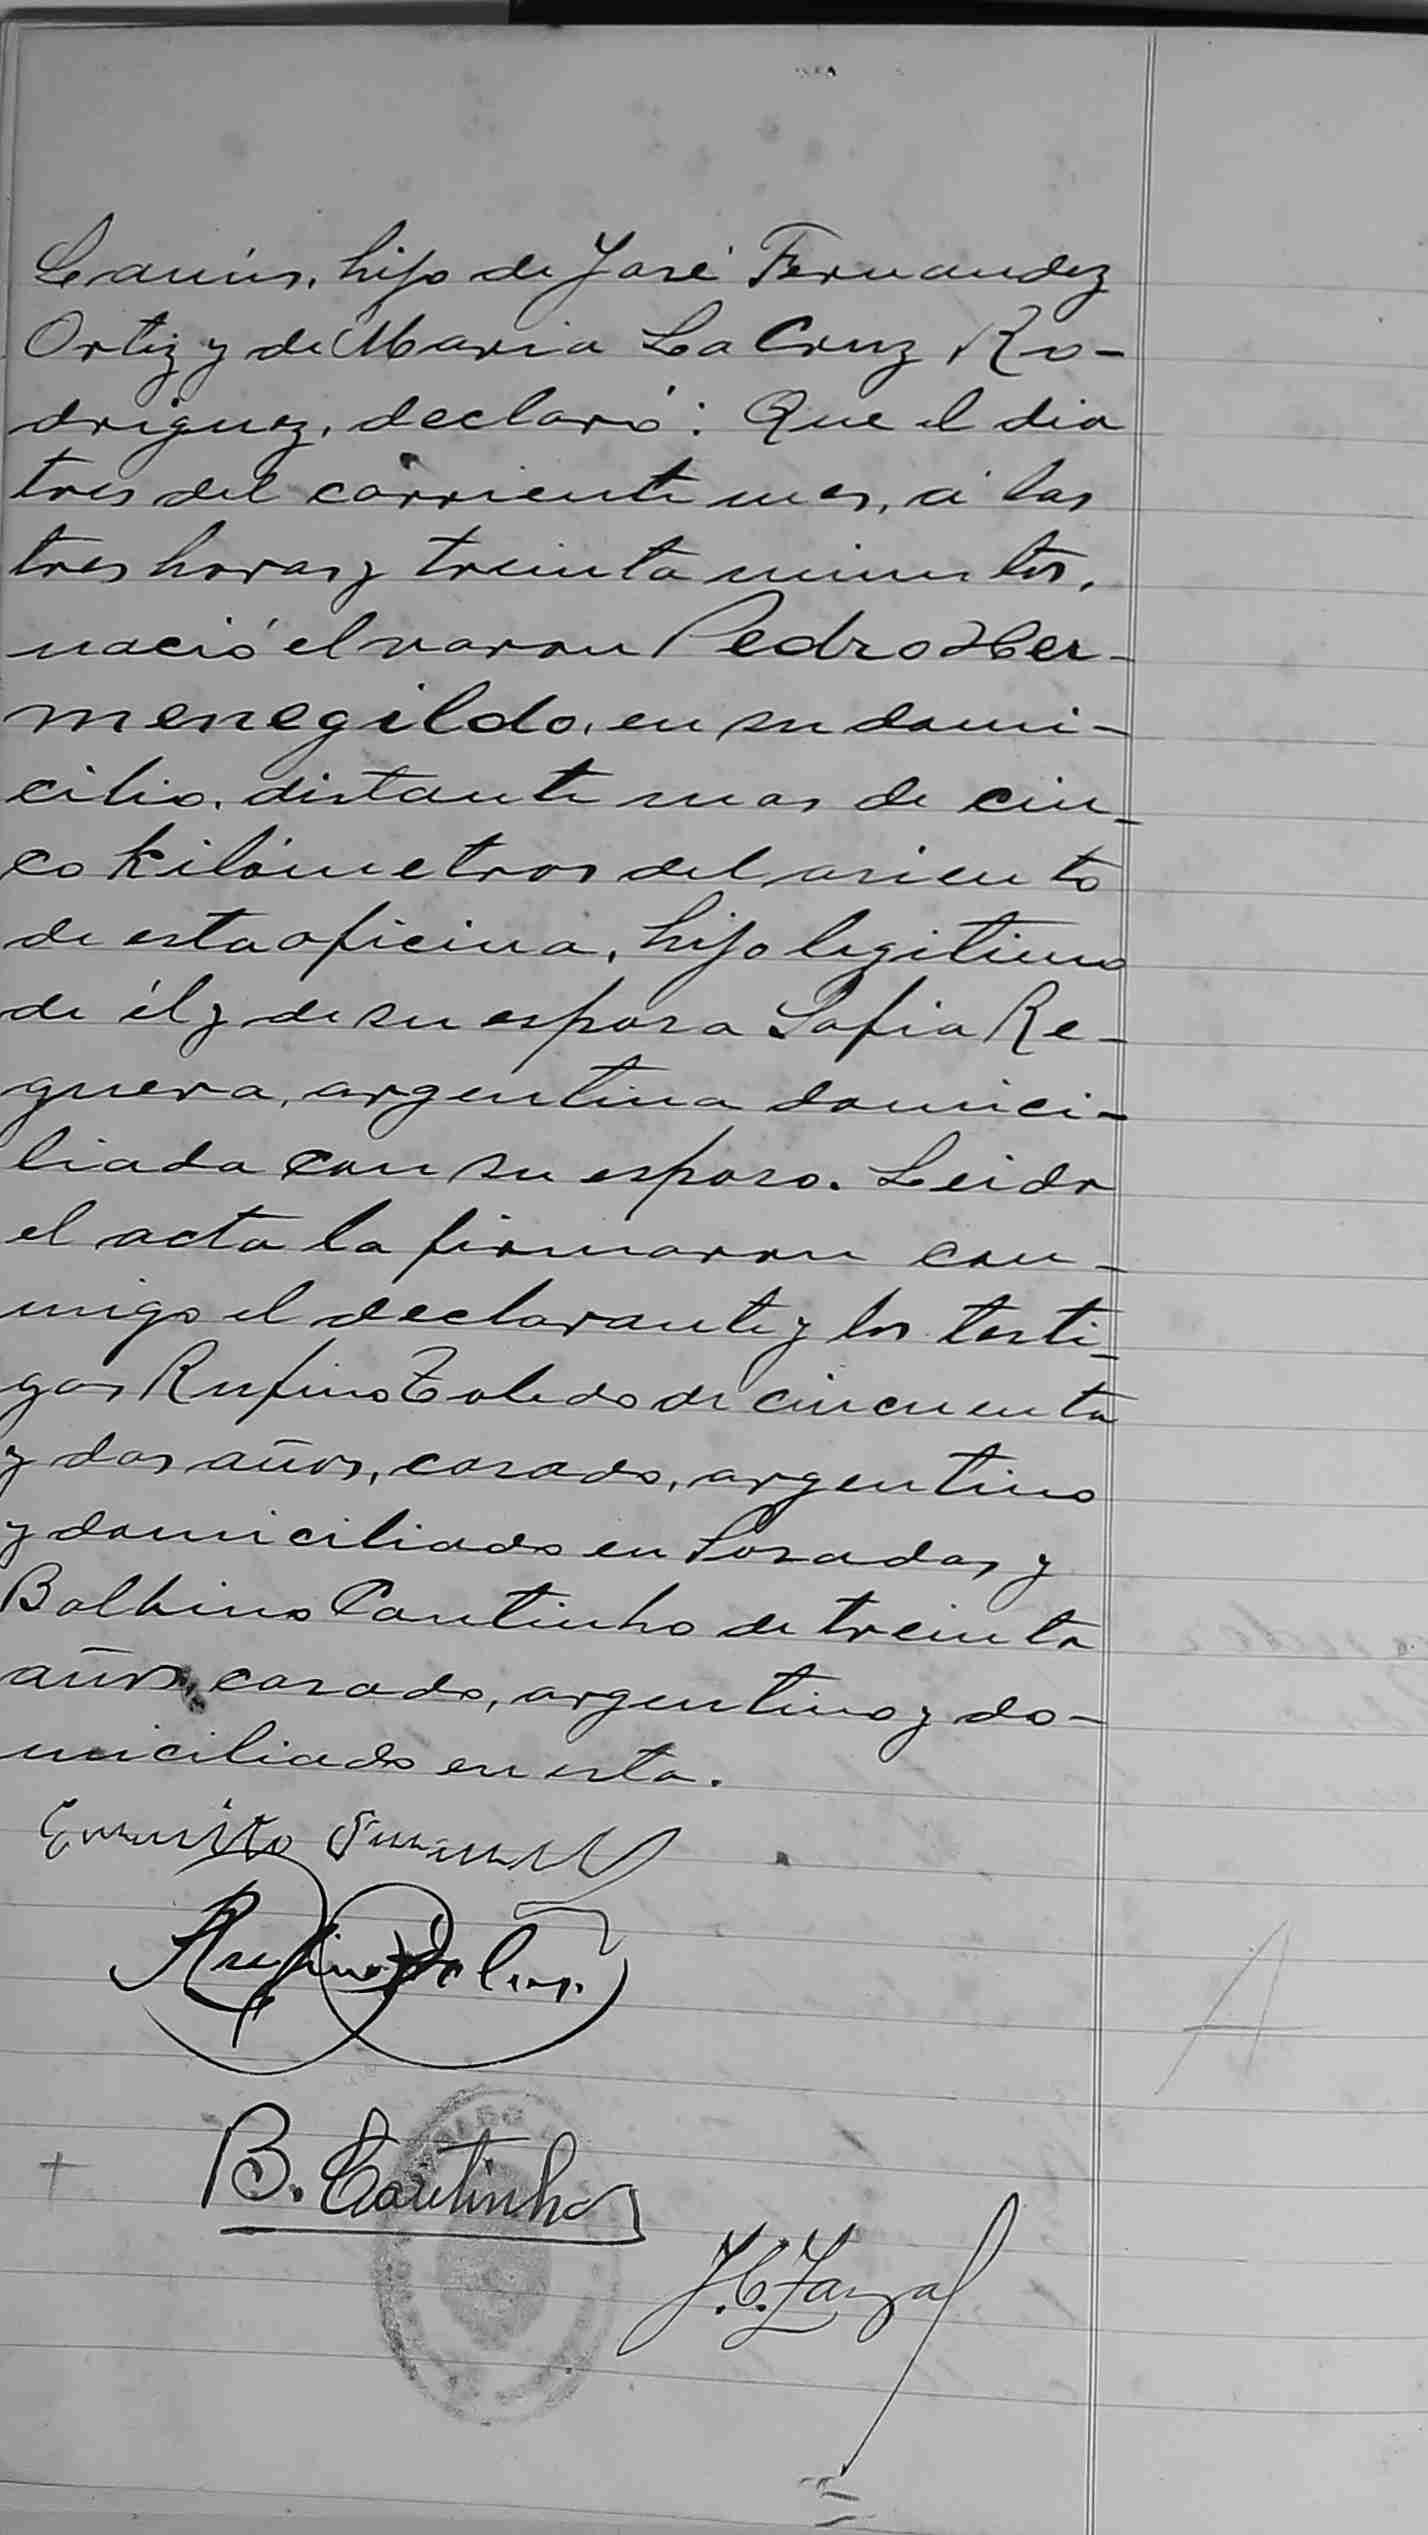 Lanús, hijo de José Fernandez
Ortiz y de Maria La Cruz Ro-
driguez, declaró: Que el dia
tres del corriente mes, á las
tres horas y treinta minutos,
nació el varon Pedro Her-
menegildo, en su domi-
cilio, distante mas de cin-
co kilómetros del asiento
de esta oficina, hijo legitimo
de él y de su esposa Sofia Re-
guera, argentina domici-
liada con su esposo. Leida
el acta la firmaron con-
migo el declarante y los testi-
gos Rufino Toledo de cincuenta
y dos años, casado, argentino
y domiciliado en Posadas y
Balbino Coutinho de treinta
años, casado, argentino y do-
miciliado en esta.
Rufino
B. Coutinho